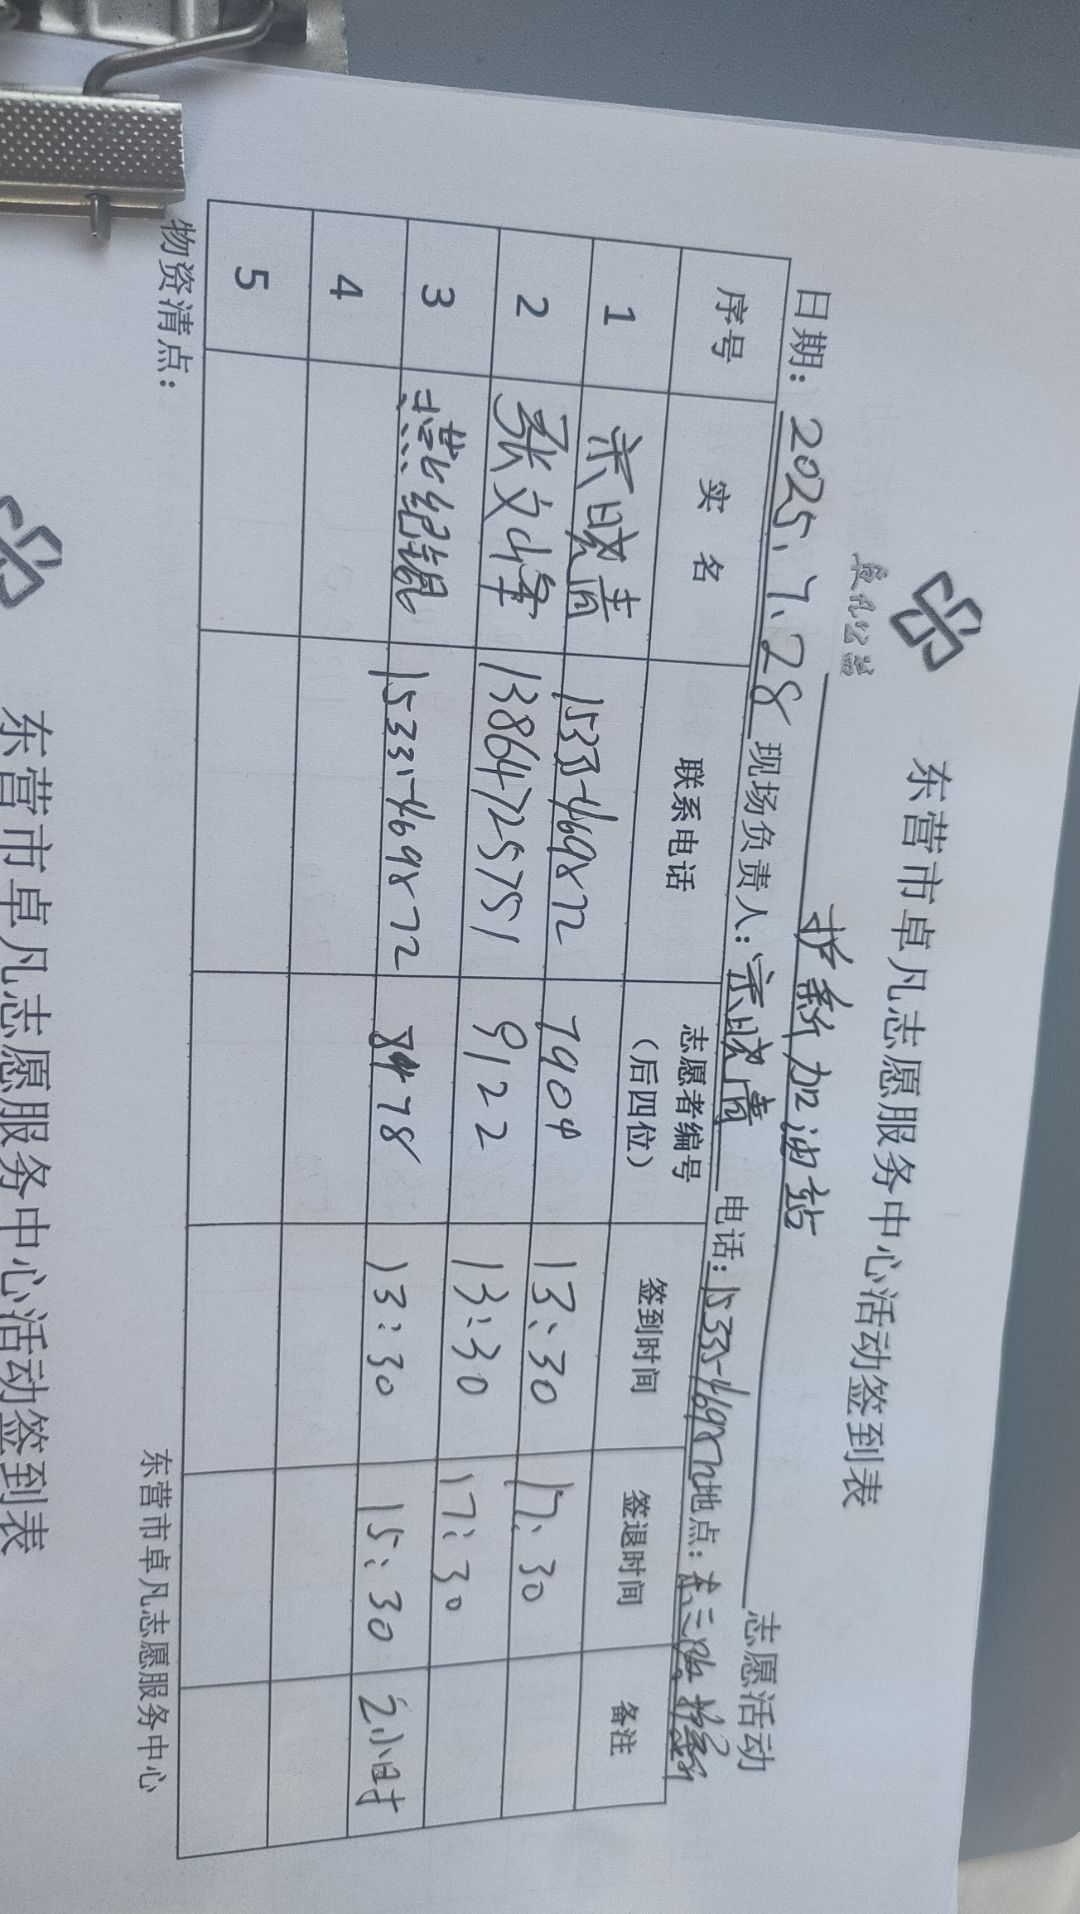 东营市卓凡志愿服务中心活动签到表
卓凡公益
护新加油站 志愿活动
日期: 2025.7.28 现场负责人: 宗晓清 电话: 15335469872 地点: 东三路
序号 实名 联系电话 志愿者编号(后四位) 签到时间 签退时间 备注
1 宗晓清 15335469872 7904 13:30 17:30
2 张文峰 13864725751 9122 13:30 17:30
3 燕纪锟 15335469872 78 13:30 15:30 2小时
4
5
物资清点: 东营市卓凡志愿服务中心
东营市卓凡志愿服务中心活动签到表